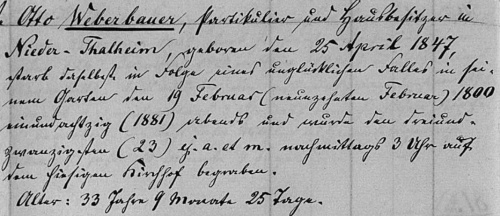 Otto Weberbauer, Partikulier und Hausbesitzer in
Nieder-Thalheim, geboren den 25 April 1847,
starb daselbst in Folge eines unglücklichen Falles in sei-
nem Garten den 19 Februar (neunzehnten Februar) 1800
einundachtzig (1881) abends und wurde den dreiund-
zwanzigsten (23) ej. a. et m. nachmittags 3 Uhr auf
dem hiesigen Kirchhof begraben.
Alter: 33 Jahre 9 Monate 25 Tage.